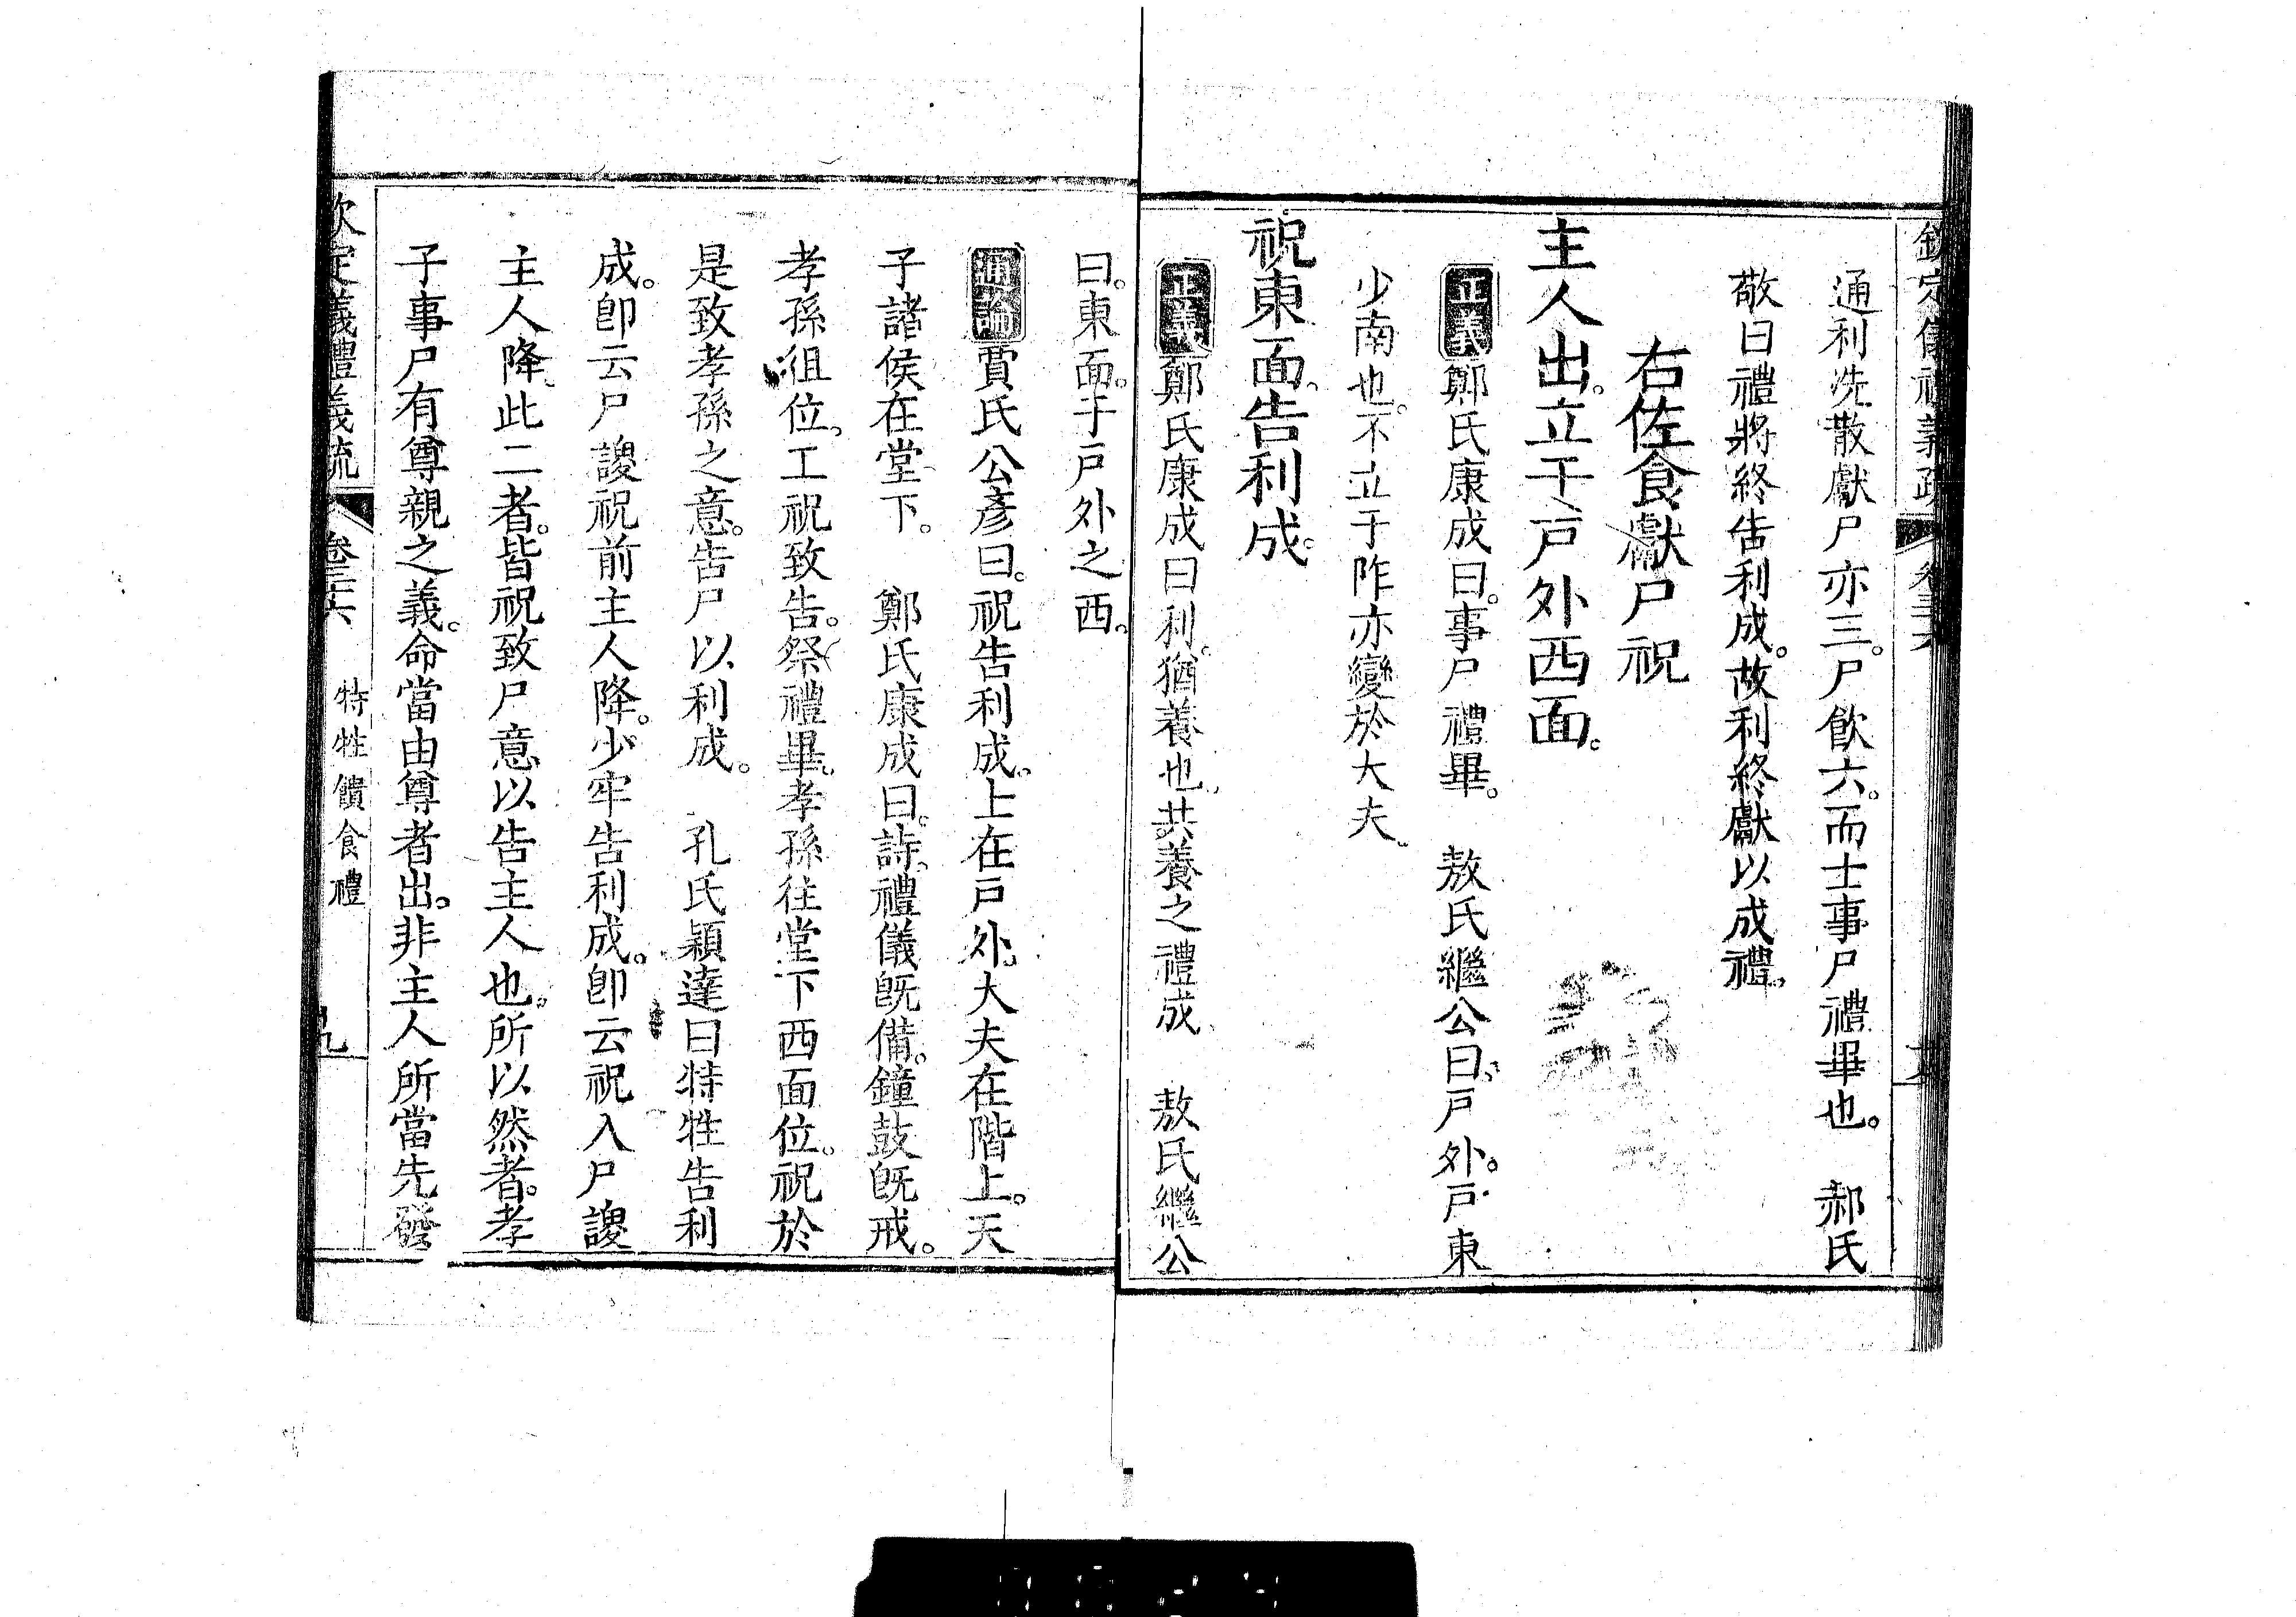 通利洗散獻尸亦三。尸飲六。而士事尸禮畢也。　郝氏
敬曰禮將終告利成。故利終獻以成禮。
右佐食獻尸祝
主人出。立于戸外西面。
正義鄭氏康成曰。事尸禮畢。　敖氏繼公曰。戸外。戸東
少南也。不立于阼亦變於大夫。
祝東面。告利成。
正義鄭氏康成曰利。猶養也。共養之禮成　敖氏繼公
曰。東面。于戸外之西。
通論賈氏公彥曰。祝告利成。上在戸外。大夫在階上。天
子諸侯在堂下。　鄭氏康成曰。詩。禮儀旣備。鐘鼓旣戒。
孝孫徂位。工祝致告。祭禮畢。孝孫往堂下西面位。祝於
是致孝孫之意。告尸以利成。　孔氏穎達曰特牲告利
成。卽云尸謖祝前主人降。少牢告利成。卽云祝入尸謖
主人降。此二者。皆祝致尸意以告主人也。所以然者。孝
子事尸有尊親之義。命當由尊者出。非主人所當先發
欽定儀禮義疏　卷三六　特牲饋食禮　九